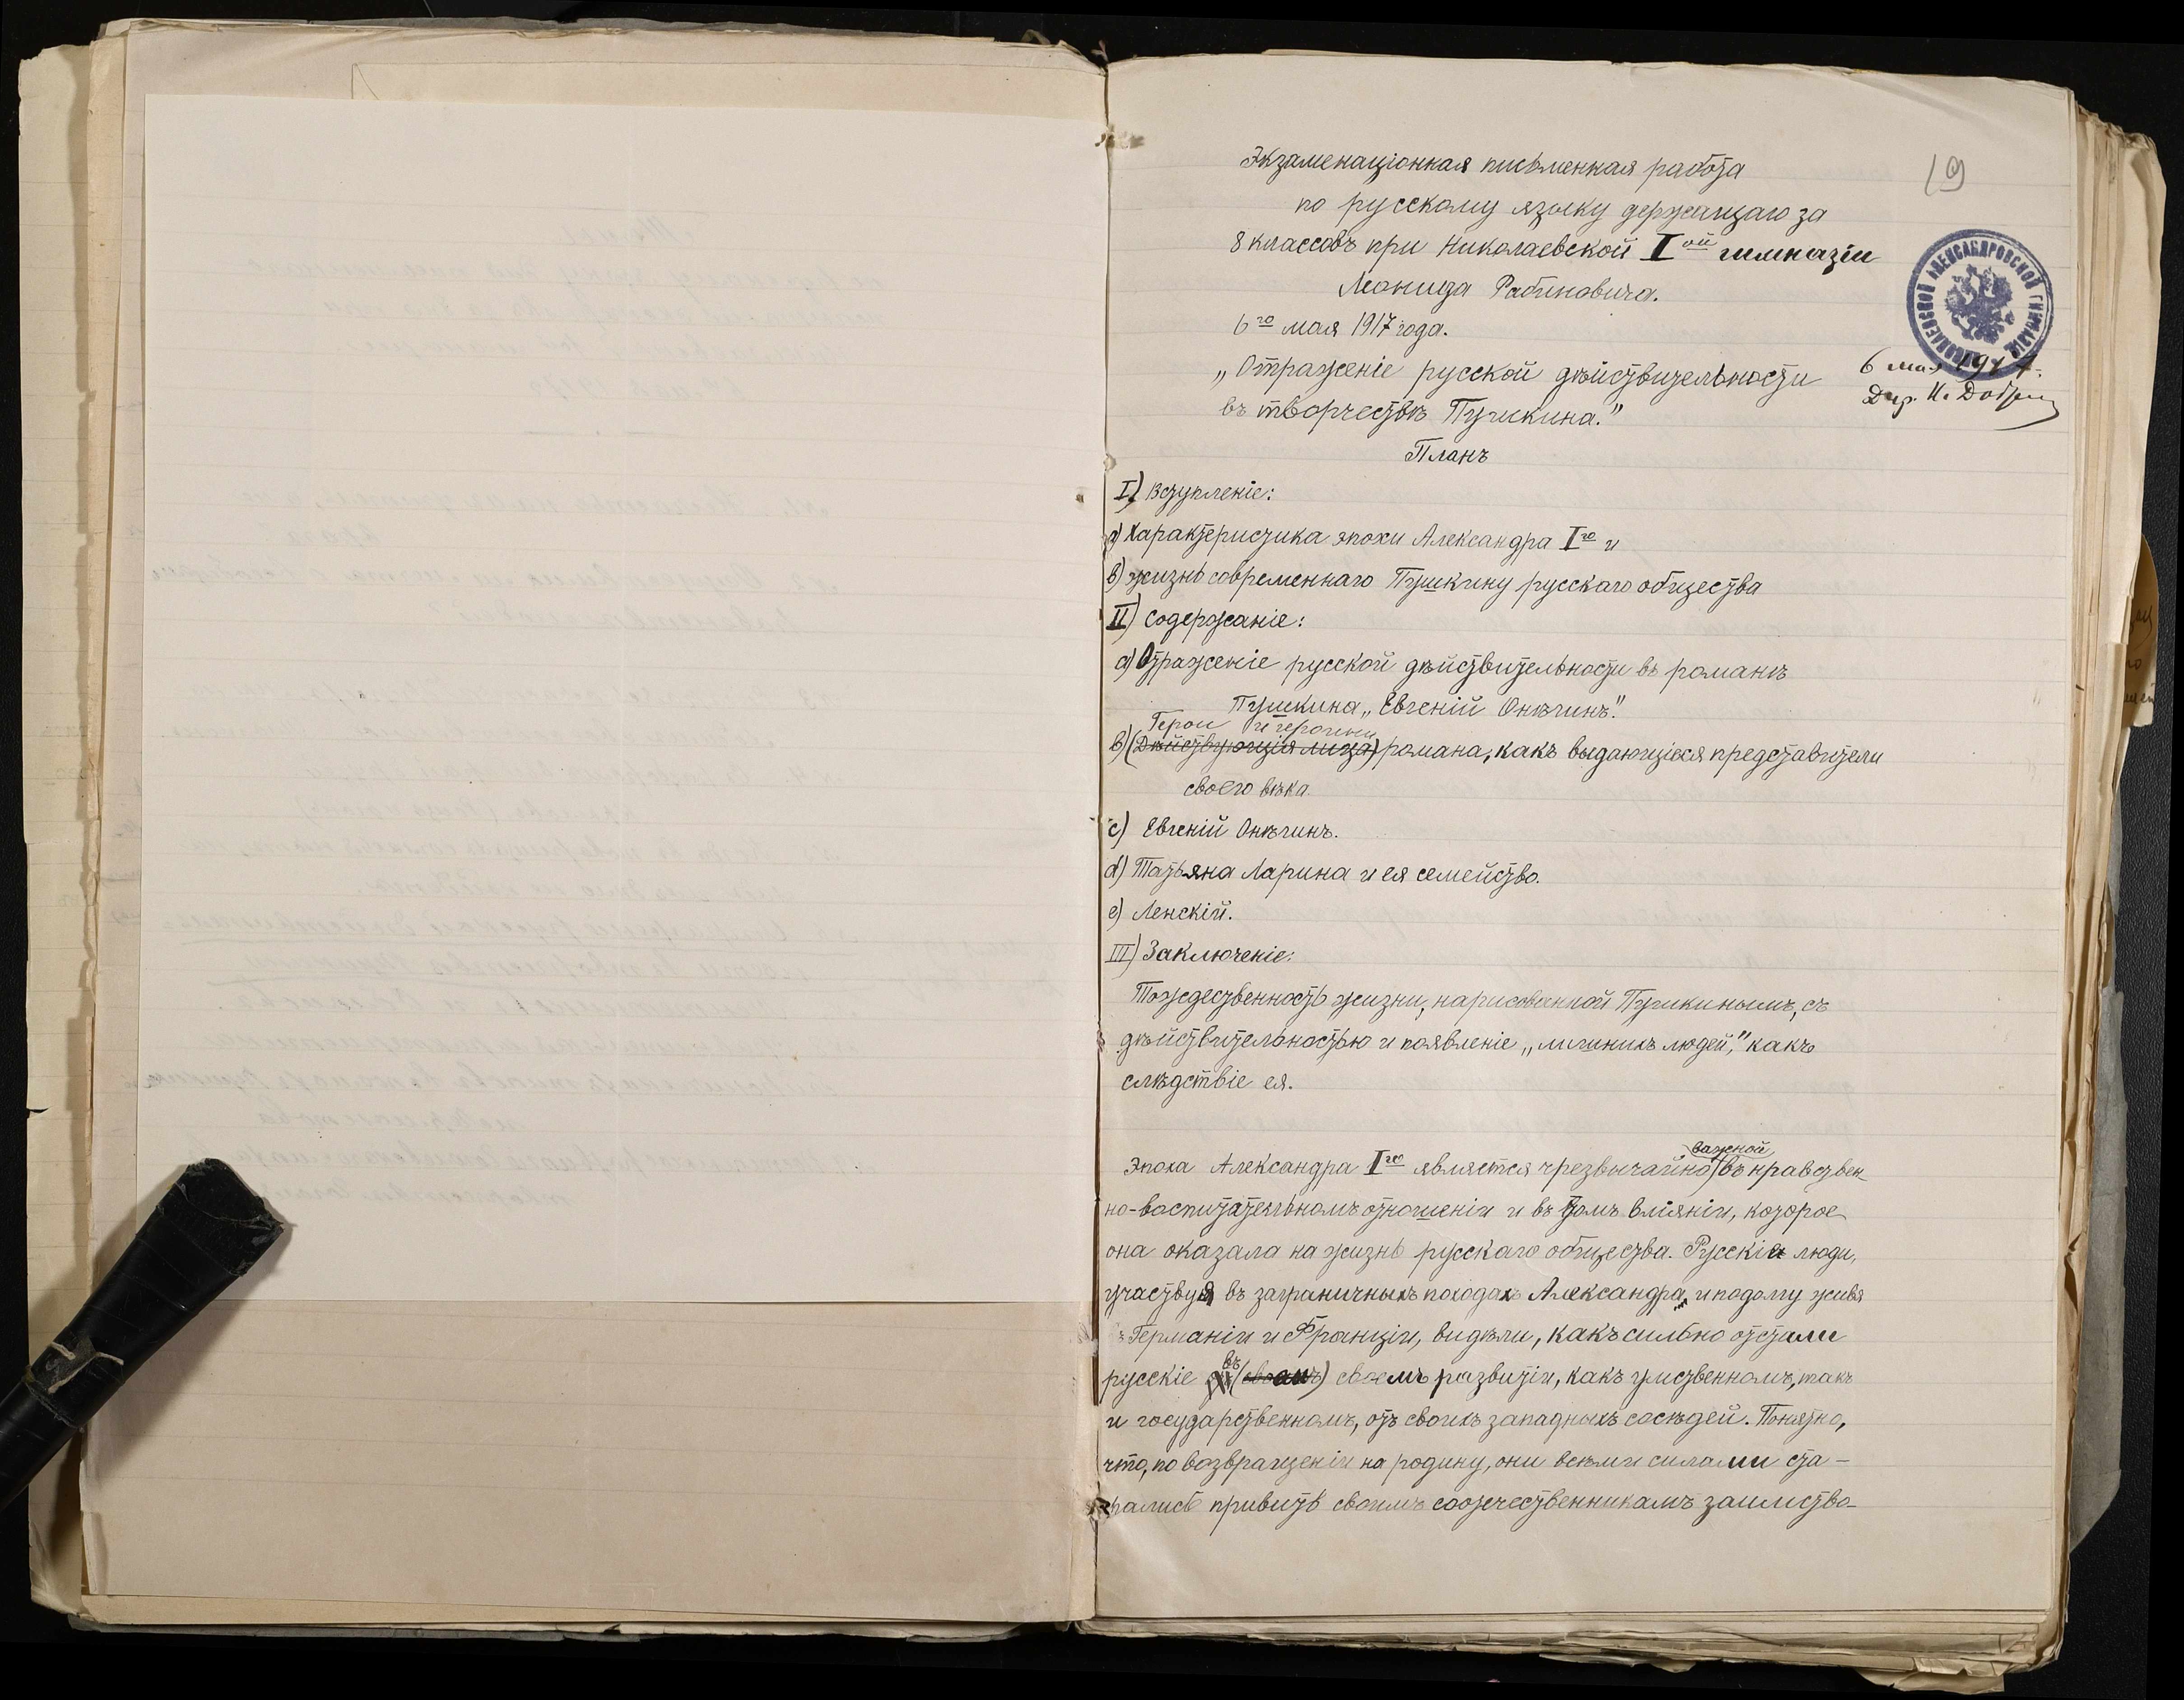 19
Экзаменаціонная письменная работа
по русскому языку держащаго за
8 классовъ при Николаевской Iой гимназіи
Леонида Рабиновича.
6го мая 1917 года.
НИКОЛАЕВСКОЙ АЛЕКСАНДРОВСКОЙ ГИМНАЗІИ
6 мая 1917.
Дир. Н.
„Отраженіе русской дѣйствительности
въ творчествѣ Пушкина."
Планъ
I) Вступленіе:
a) Характеристика эпохи Александра Iго и
b) жизнь современнаго Пушкину русскаго общества
II) Содержаніе:
a) Отраженіе русской дѣйствительности въ романѣ
Пушкина „Евгеній Онѣгинъ".
Герои и героини
b) (Дѣйствующія лица) романа, какъ выдающіеся представители
своего вѣка.
c) Евгеній Онѣгинъ.
d) Татьяна Ларина и ея семейство.
e) Ленскій.
III) Заключеніе:
Тождественность жизни, нарисованной Пушкинымъ, съ
дѣйствительностью и появленіе „лишнихъ людей," какъ
слѣдствіе ея.
важной
Эпоха Александра Iго является чрезвычайно въ нравствен
но-воспитательномъ отношеніи и въ томъ вліяніи, которое
она оказала на жизнь русскаго общества. Русскіе люди,
участвуя въ заграничныхъ походахъ Александра, и подолгу живя
въ Германіи и Франціи, видѣли, какъ сильно отстали
въ
русскіе (своемъ) своемъ развитіи, какъ умственномъ, такъ
и государственномъ, отъ своихъ западныхъ сосѣдей. Понятно,
что, по возвращеніи на родину, они всѣми силами ста-
рались привить своимъ соотечественникамъ заимство-